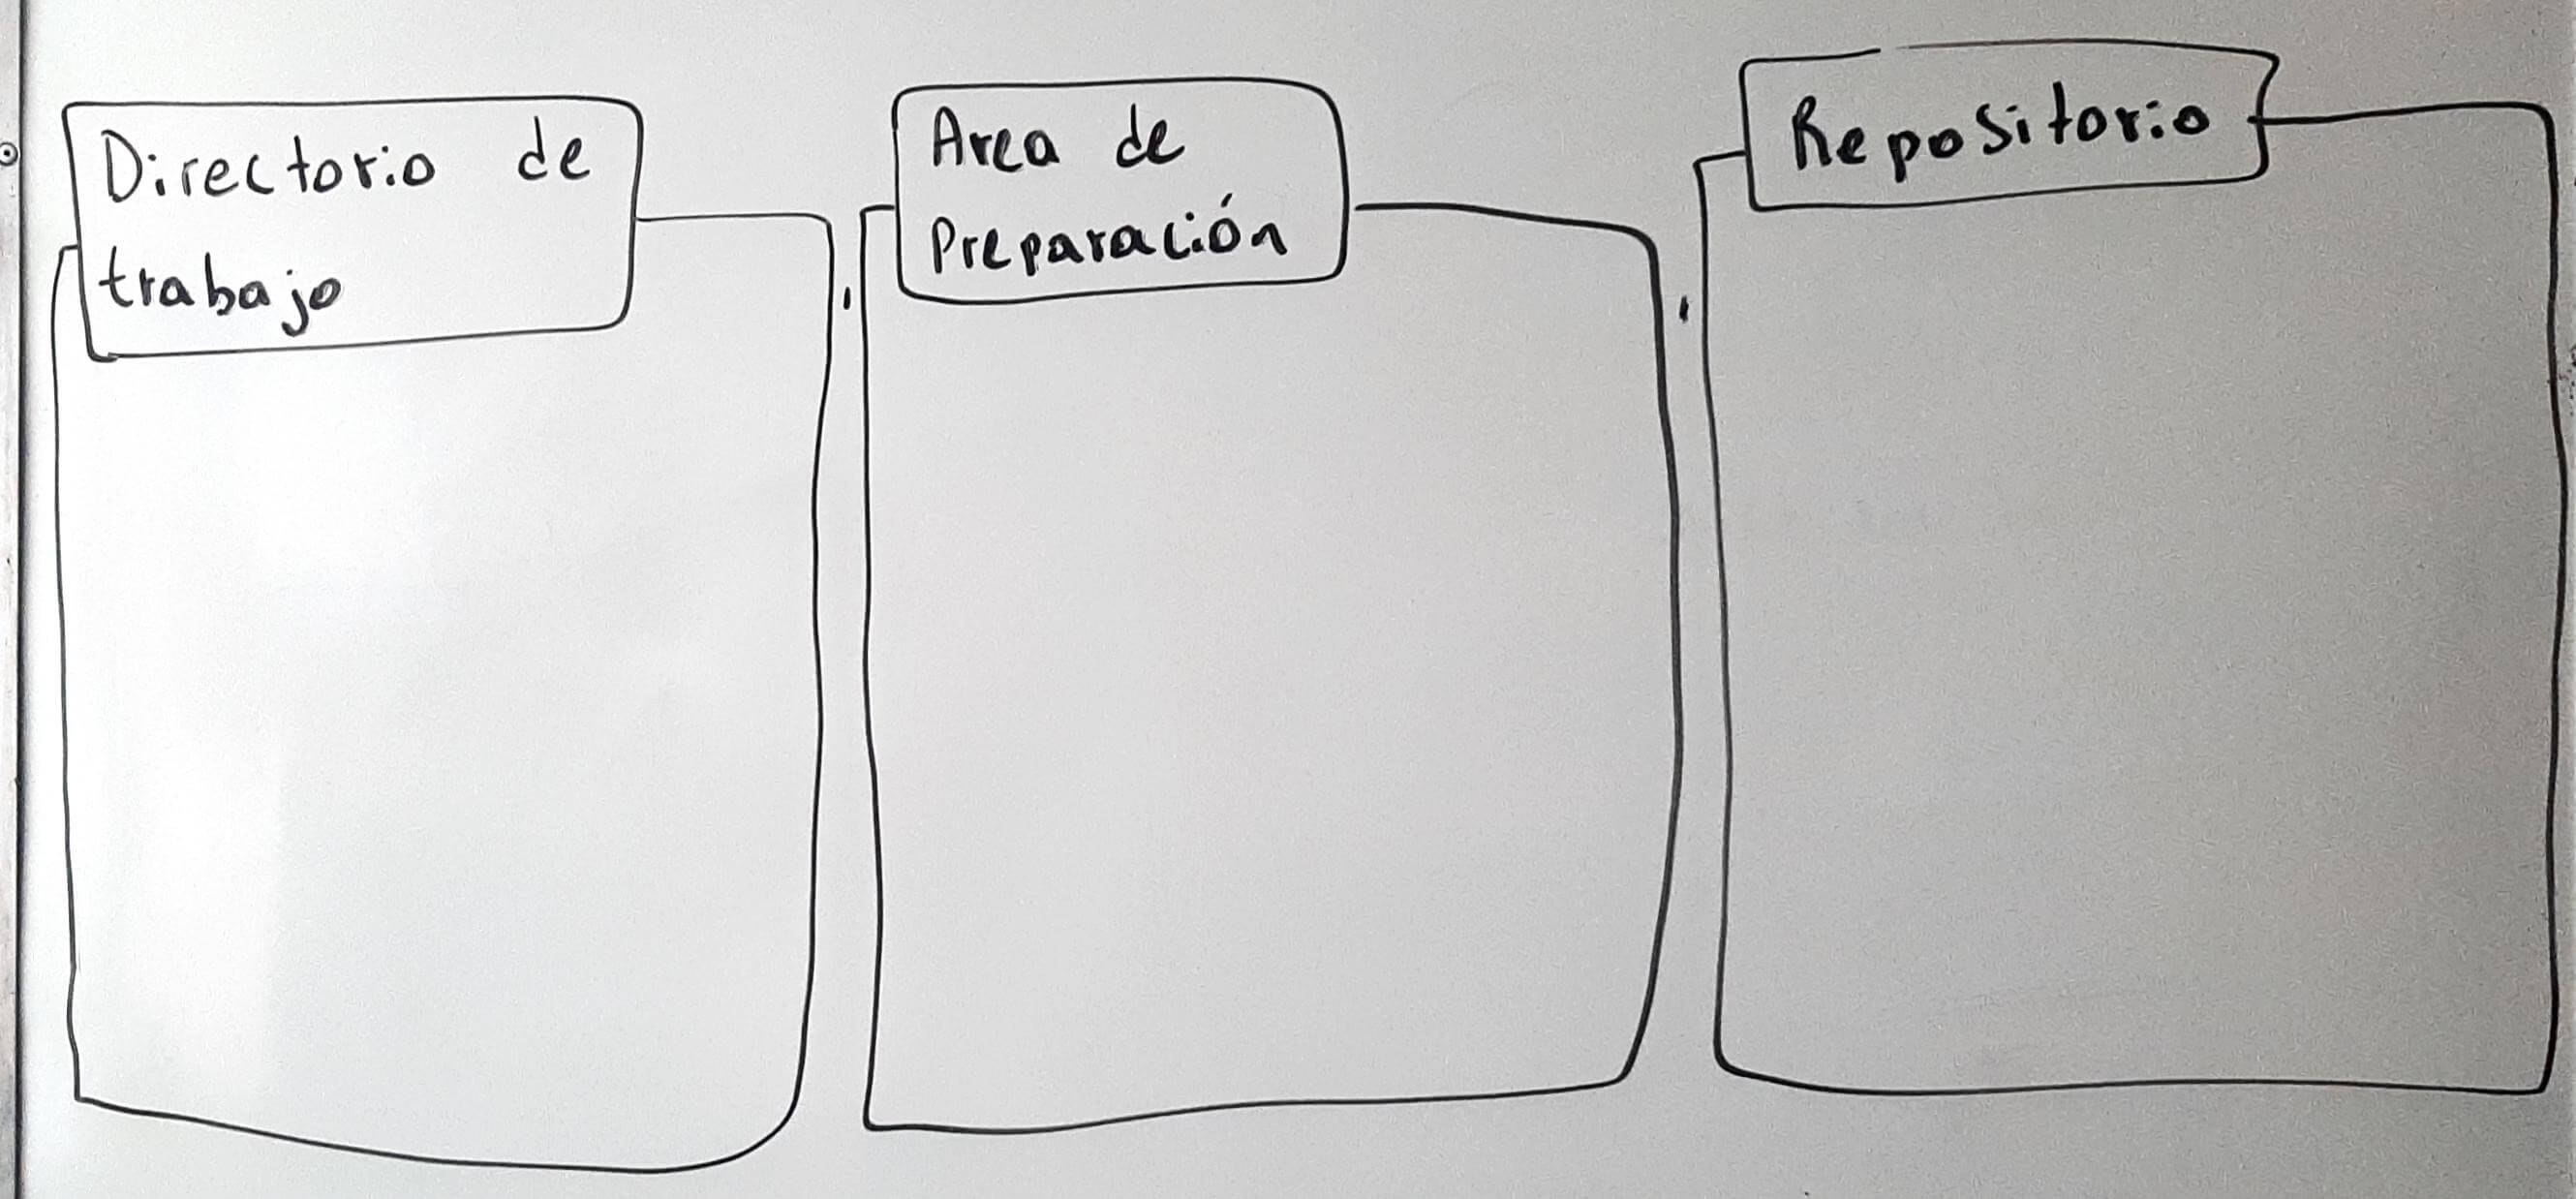 Directorio de
trabajo
Area de
Preparación
Repositorio